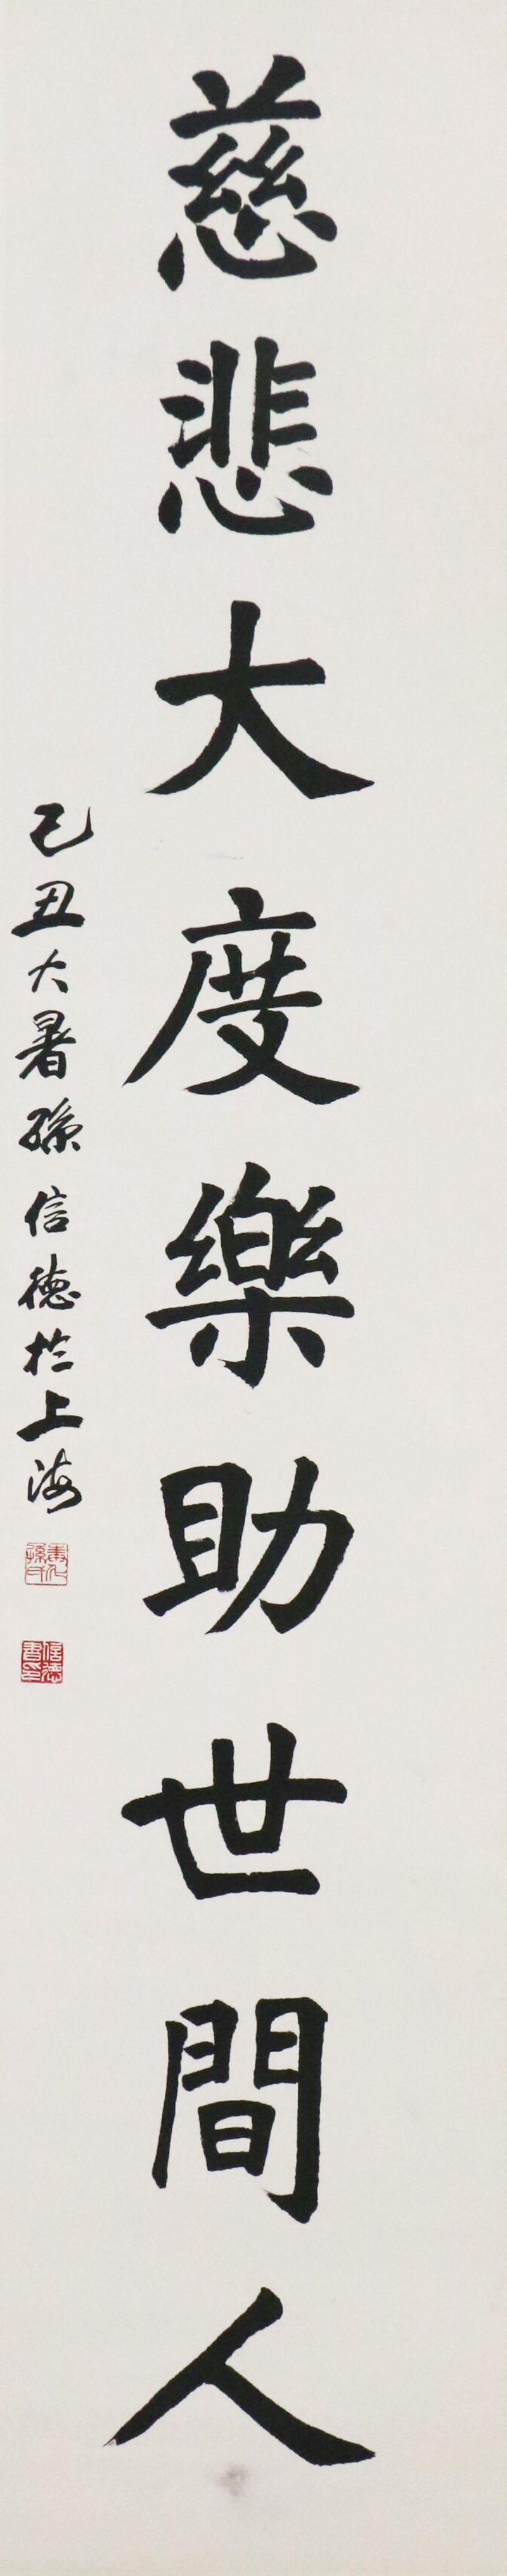 慈悲大度樂助世間人
己丑大暑孫信德於上海
信德書印